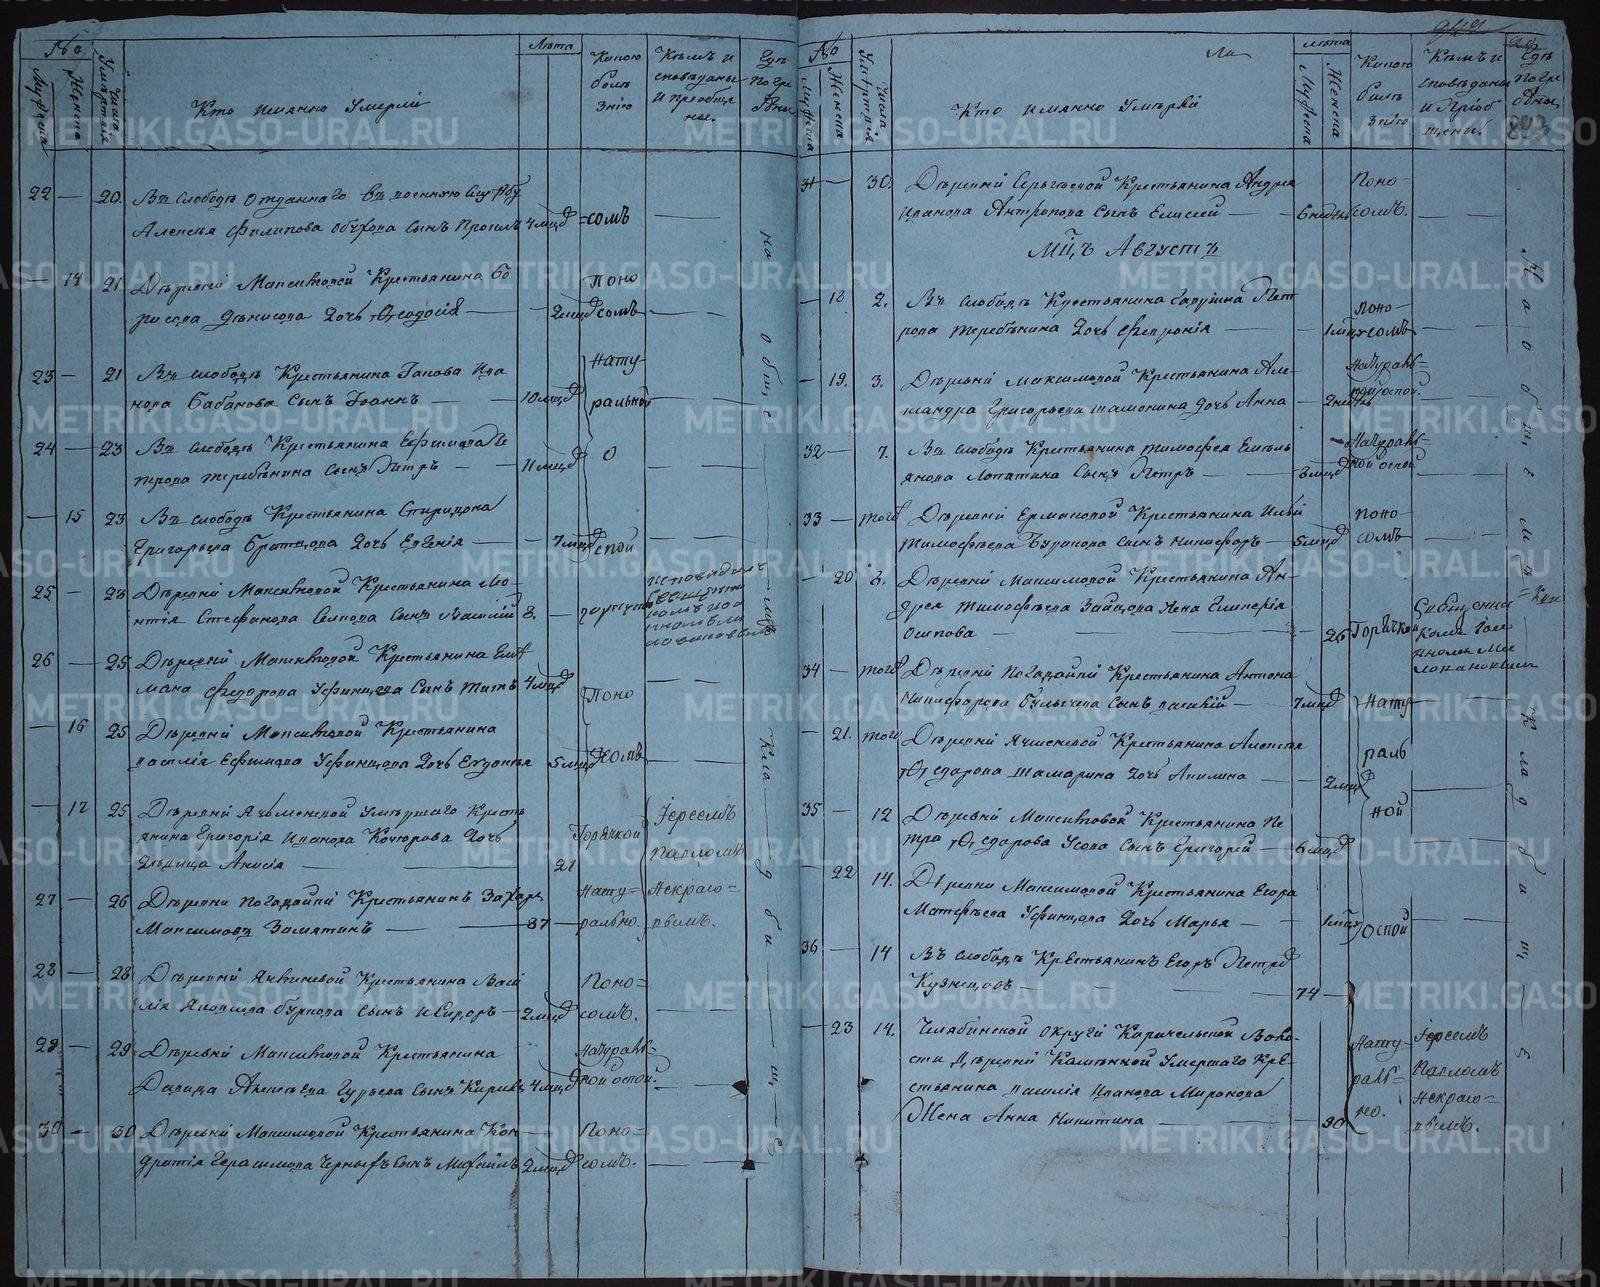 No
Мужеска
Женска
Числа Умертвия
Кто имянно Умерли
Лѣта
Какою болѣзнію
Кѣмъ исповѣданы и преобщены.
Гдѣ погребены
22 — 20. Въ слободѣ отданнаго въ военную службу
Алексѣя Филипова Обухова сынъ 4 мцд = сомъ
— 14 21 Деревни Максимовой Крестьянина Бо
рисова Денисова дочь Ѳеодосія — 2 мцд Поносомъ
23 — 21 Въ слободѣ Крестьянина Іакова Ива
нова Бабанова сынъ Іоаннъ — 10 мцд Натуральной
24 — 23 Въ слободѣ Крестьянина Ефима Пе
трова Теребенина сынъ Петръ — 11 мцд О
— 15 23 Въ слободѣ Крестьянина Спиридона
Григорьева Братцова дочь Евгенія — 7 мцд спой
25 — 23 Деревни Максимовой Крестьянина
Стефанова сынъ Василій 8.
26 — 25 Деревни Максимовой Крестьянина
Федорова Уфинцова сынъ Титъ 4 мцд Поно
— 16 25 Деревни Максимовой Крестьянина
Василія Ефимова Уфинцова дочь Евдокія 5 мцд сомъ
— 17 25 Деревни Ячменевой Умершаго Кресть
янина Григорія Иванова дочь
дѣвица Анисія — 21 Горячкой
Іереемъ Павломъ Некрасовымъ.
27 — 26 Деревни Погадайки Крестьянинъ Захаръ
Максимовъ Замятинъ — 87 — Натурально.
28 — 28 Деревни Крестьянина Васи
лія Яковлева Буркова сынъ Исидоръ — 2 мцд Поносомъ.
29 — 29 Деревни Максимовой Крестьянина
Давида Алексѣева Гурьева сынъ 4 мцд Натуральной оспой.
30 — 30 Деревни Максимовой Крестьянина Кон
дратія Герасимова сынъ 2 мцд Поносомъ.
на общемъ кладбище
No
Мужеска
Женска
Числа Умертвія
Кто имянно Умѣрли
Лѣта
Мужеска
Женска
Какою болѣзнію
Кѣмъ исповѣданы и приобщены.
Гдѣ погребены
31 — 30. Деревни Сергѣевой Крестьянина Андрея
Иванова Антропова сынъ Елисей — 6 недель Поносомъ.
Мцъ Августъ
— 18 2. Въ слободѣ Крестьянина Гаврила Пет
рова Теребенина дочь Февронія — 1 мцъ Поносомъ
— 19. 3. Деревни Максимовой Крестьянина Але
ксандра Григорьева Шамонина дочь Анна — 2 недели Натуральной оспой.
32 — 7. Въ слободѣ Крестьянина Тимофея Емель
янова Лопатина сынъ Петръ — 3 мцд Натуральной оспой
33 — того Деревни Ермаковой Крестьянина Ильи
Тимофѣева Буракова сынъ Никифоръ — 5 мцд Поносомъ
— 20 8. Деревни Максимовой Крестьянина Ан-
дрея Тимофѣева Зайцова жена Гликерія
Осипова — 26 Горячкой
34 — того Деревни Погадайки Крестьянина Антона
Никифорова Булычева сынъ — 7 мцд Нату
— 21. того Деревни Ячменевой Крестьянина Алексѣя
Ѳедорова Шамарина дочь Акилина — 2 мцд раль
35 — 12 Деревни Максимовой Крестьянина Пе
тра Ѳедорова Усова сынъ Григорей — 6 мцд ной
— 22 14. Деревни Максимовой Крестьянина Егора
Матвѣева Уфинцова дочь Марья — 1 мцъ оспой
36 — 14 Въ слободѣ Крестьянинъ Егоръ Петров
Кузнецовъ — 74 —
— 23 14. Челябинской округи Карачельской Воло-
сти деревни Каменной Умершаго Кре-
стьянина Василія Иванова Миронова
Жена Анна Никитина — 90 Натурально.
Іереемъ Павломъ Некрасовымъ.
На общемъ кладбище